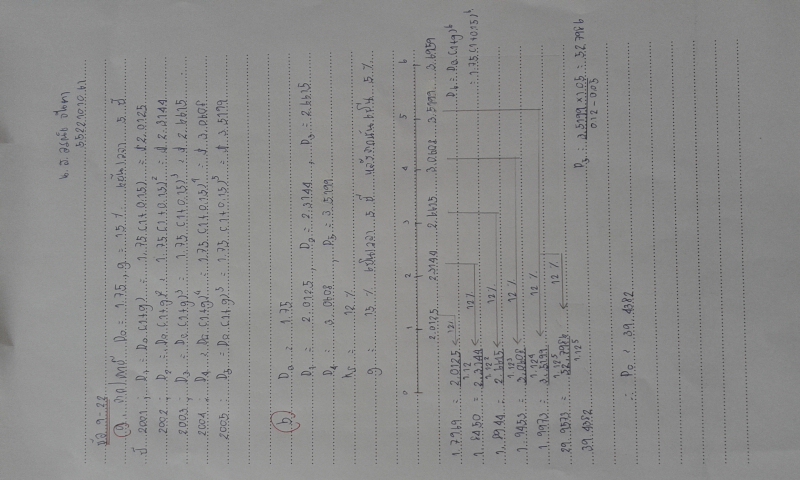 น.ส. อรณัช
ข้อ 9-22
a. D₀ = 1.75 , g = 15 % เป็นเวลา 5 ปี
ปี 2001 ; D₁ = D₀ (1+g) = 1.75 (1+0.15) = $ 2.0125
2002 ; D₂ = D₀ (1+g)² = 1.75 (1+0.15)² = $ 2.3144
2003 ; D₃ = D₀ (1+g)³ = 1.75 (1+0.15)³ = $ 2.6615
2004 ; D₄ = D₀ (1+g)⁴ = 1.75 (1+0.15)⁴ = $ 3.0608
2005 ; D₅ = D₀ (1+g)⁵ = 1.75 (1+0.15)⁵ = $ 3.5199
b D₀ = 1.75
D₁ = 2.0125 , D₂ = 2.3144 , D₃ = 2.6615
D₄ = 3.0608 , D₅ = 3.5199
ks = 12 %
g = 15 % เป็นเวลา 5 ปี หลังจากนั้นเป็น 5 %
0 1 2 3 4 5 6
2.0125 2.3144 2.6615 3.0608 3.5199 3.6959
1.7969 = 2.0125 12%
1.12
D₆ = D₀ (1+g)⁶
1.8450 = 2.3144 12%
1.12²
= 1.75 (1+0.15)⁶
1.8944 = 2.6615 12 %
1.12³
1.9453 = 3.0608 12 %
1.12⁴
1.9973 = 3.5199 12 %
1.12⁵
29.9573 = 52.7986 12 %
1.12⁵
39.4382
P₅ = 3.5199 × 1.05 = 52.7986
0.12 - 0.05
∴ P₀ = 39.4382